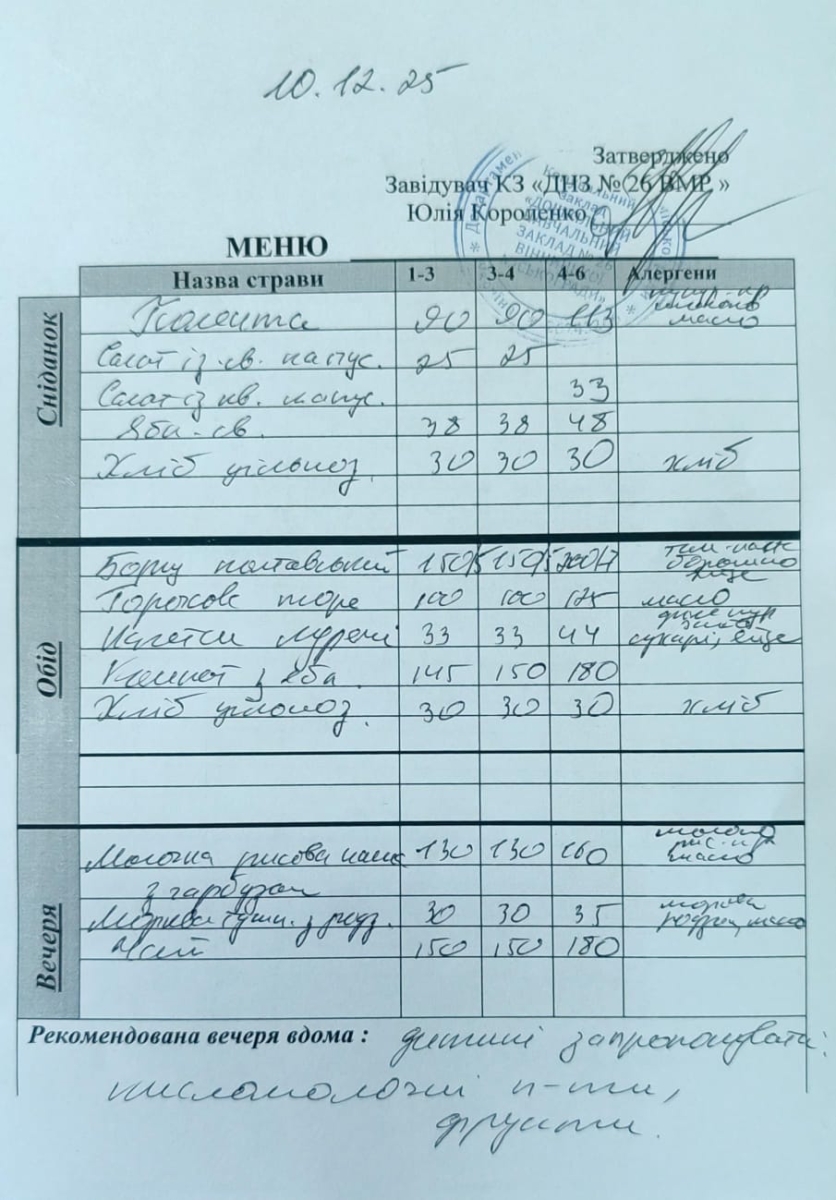 10.12.25
Затверджено
Завідувач КЗ «ДНЗ № 26 ВМР »
Юлія Короленко
МЕНЮ
Назва страви 1-3 3-4 4-6 Алергени
Сніданок
Полента 90 90 113 масло
Салат із св. капус. 25 25
Салат із кв. капус. 33
Ябл. св. 38 38 48
Хліб цільноз. 30 30 30 хліб
Обід
Борщ полтавський 150/5 150/5 200/7 борошно яйце
Горохове пюре 100 100 125 масло
Нагетси курячі 33 33 44 сухарі, яйце
Компот з ябл. 145 150 180
Хліб цільноз. 30 30 30 хліб
Вечеря
Молочна рисова каша 130 130 160 молоко рис. кр масло
з гарбузом
Морква туш. з родз. 30 30 35 морква родзин, масло
Чай 150 150 180
Рекомендована вечеря вдома : дитині запропонувати:
кисломолочні п-ти,
фрукти.